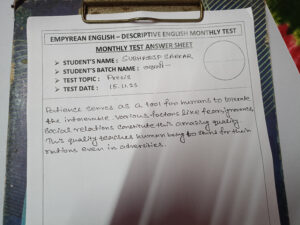 EMPYREAN ENGLISH – DESCRIPTIVE ENGLISH MONTHLY TEST
MONTHLY TEST ANSWER SHEET
➤ STUDENT'S NAME : SUBHRADIP SARKAR
➤ STUDENT'S BATCH NAME :
➤ TEST TOPIC : Precis
➤ TEST DATE : 15.11.25
Patience serves as a tool for humans to tolerate
the intolerable. Various factors like team,
social relations constitute this amazing quality.
This quality teaches human being to for their
even in adversities.